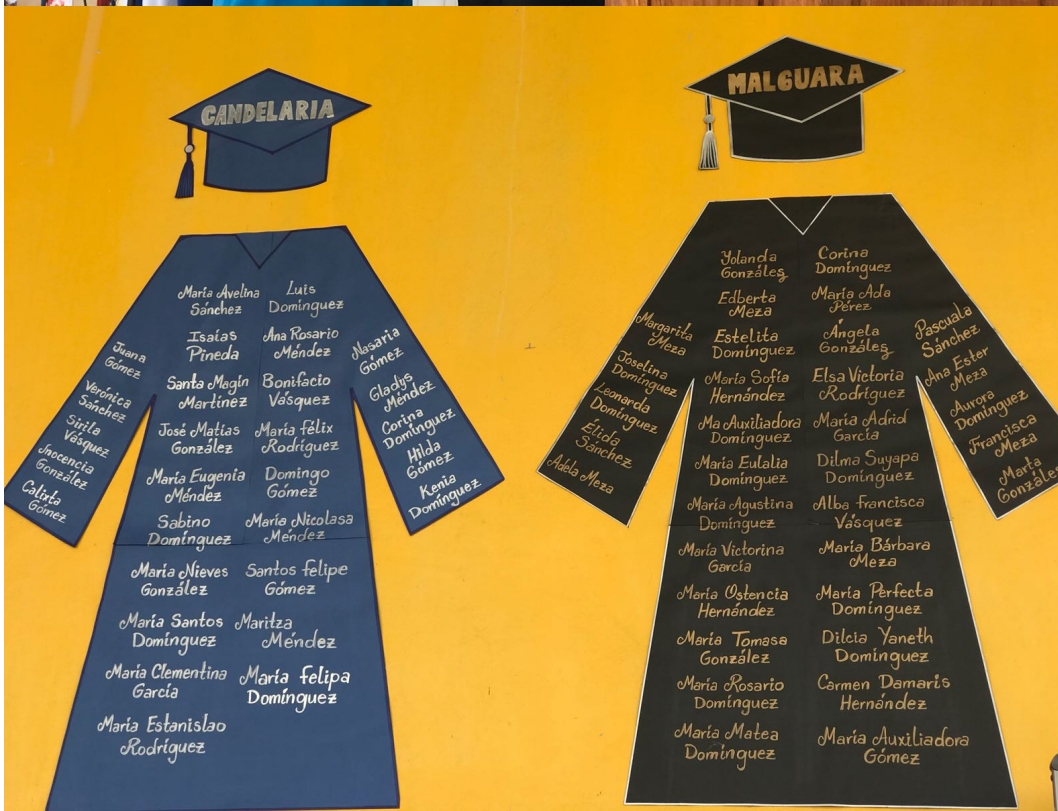 CANDELARIA
Juana
Gómez
Verónica
Sánchez
Sirila
Vásquez
Inocencia
González
Calixta
Gómez
María Avelina
Sánchez
Isaías
Pineda
Santa Magín
Martínez
José Matías
González
María Eugenia
Méndez
Sabino
Domínguez
María Nieves
González
María Santos
Domínguez
María Clementina
García
María Estanislao
Rodríguez
Luis
Domínguez
Ana Rosario
Méndez
Bonifacio
Vásquez
María félix
Rodríguez
Domingo
Gómez
María Nicolasa
Méndez
Santos felipe
Gómez
Maritza
Méndez
María felipa
Domínguez
Nasaria
Gómez
Gladys
Méndez
Corina
Domínguez
Hilda
Gómez
Kenia
Domínguez
MALGUARA
Margarita
Meza
Joselina
Domínguez
Leonarda
Domínguez
Elida
Sánchez
Adela Meza
Yolanda
Gonzáles
Edberta
Meza
Estelita
Domínguez
María Sofía
Hernández
Ma Auxiliadora
Domínguez
María Eulalia
Domínguez
María Agustina
Domínguez
María Victorina
García
María Ostencia
Hernández
María Tomasa
González
María Rosario
Domínguez
María Matea
Domínguez
Corina
Domínguez
María Ada
Pérez
Ángela
Gonzáles
Elsa Victoria
Rodríguez
María Adrid
García
Dilma Suyapa
Domínguez
Alba francisca
Vásquez
María Bárbara
Meza
María Perfecta
Domínguez
Dilcia Yaneth
Domínguez
Carmen Damaris
Hernández
María Auxiliadora
Gómez
Pascuala
Sánchez
Ana Ester
Meza
Aurora
Domínguez
Francisca
Meza
Marta
González